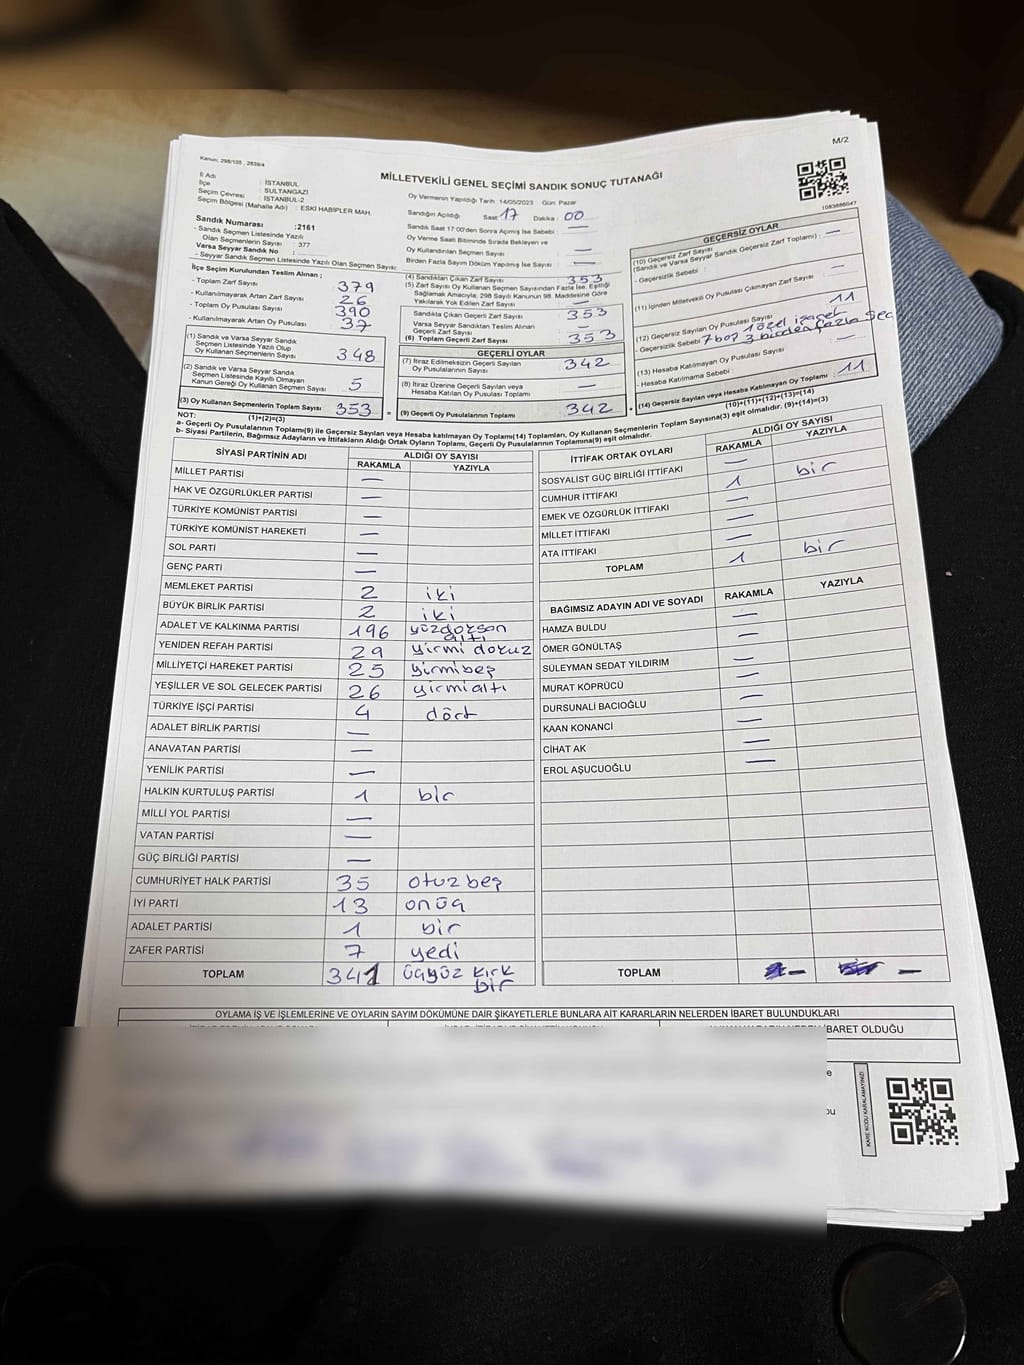 M/2
Kanun: 298/105 , 2839/4
MİLLETVEKİLİ GENEL SEÇİMİ SANDIK SONUÇ TUTANAĞI
1083666047
İl Adı : İSTANBUL
İlçe : SULTANGAZİ
Seçim Çevresi : İSTANBUL-2
Seçim Bölgesi (Mahalle Adı) : ESKİ HABİPLER MAH.
Sandık Numarası :2161
- Sandık Seçmen Listesinde Yazılı
Olan Seçmenlerin Sayısı : 377
Varsa Seyyar Sandık No :
- Seyyar Sandık Seçmen Listesinde Yazılı Olan Seçmen Sayısı:
İlçe Seçim Kurulundan Teslim Alınan ;
- Toplam Zarf Sayısı 379
- Kullanılmayarak Artan Zarf Sayısı 26
- Toplam Oy Pusulası Sayısı 390
- Kullanılmayarak Artan Oy Pusulası 37
(1) Sandık ve Varsa Seyyar Sandık
Seçmen Listesinde Yazılı Olup
Oy Kullanan Seçmenlerin Sayısı 348
(2) Sandık ve Varsa Seyyar Sandık
Seçmen Listesinde Kayıtlı Olmayan
Kanun Gereği Oy Kullanan Seçmen Sayısı 5
(3) Oy Kullanan Seçmenlerin Toplam Sayısı 353 =
(1)+(2)=(3)
Oy Vermenin Yapıldığı Tarih : 14/05/2023 Gün: Pazar
Sandığın Açıldığı Saat 17 Dakika : 00
Sandık Saat 17:00'den Sonra Açılmış İse Sebebi : —
Oy Verme Saati Bitiminde Sırada Bekleyen ve
Oy Kullandırılan Seçmen Sayısı : —
Birden Fazla Sayım Döküm Yapılmış İse Sayısı : —
(4) Sandıktan Çıkan Zarf Sayısı : 353
(5) Zarf Sayısı Oy Kullanan Seçmen Sayısından Fazla İse, Eşitliği
Sağlamak Amacıyla, 298 Sayılı Kanunun 98. Maddesine Göre
Yakılarak Yok Edilen Zarf Sayısı : —
Sandıkta Çıkan Geçerli Zarf Sayısı : 353
Varsa Seyyar Sandıktan Teslim Alınan
Geçerli Zarf Sayısı : —
(6) Toplam Geçerli Zarf Sayısı : 353
GEÇERLİ OYLAR
(7) İtiraz Edilmeksizin Geçerli Sayılan
Oy Pusulalarının Sayısı : 342
(8) İtiraz Üzerine Geçerli Sayılan veya
Hesaba Katılan Oy Pusulası Toplamı : —
(9) Geçerli Oy Pusulalarının Toplamı : 342 +
GEÇERSİZ OYLAR
(10) Geçersiz Zarf Sayısı
(Sandık ve Varsa Seyyar Sandık Geçersiz Zarf Toplamı) : —
- Geçersizlik Sebebi :
(11) İçinden Milletvekili Oy Pusulası Çıkmayan Zarf Sayısı : —
(12) Geçersiz Sayılan Oy Pusulası Sayısı : 11
- Geçersizlik Sebebi 7 boş 1 özel işaret 3 birden fazla seç
(13) Hesaba Katılmayan Oy Pusulası Sayısı : —
- Hesaba Katılmama Sebebi :
(14) Geçersiz Sayılan veya Hesaba Katılmayan Oy Toplamı : 11
(10)+(11)+(12)+(13)=(14)
NOT:
a- Geçerli Oy Pusulalarının Toplamı(9) ile Geçersiz Sayılan veya Hesaba katılmayan Oy Toplamı(14) Toplamları, Oy Kullanan Seçmenlerin Toplam Sayısına(3) eşit olmalıdır. (9)+(14)=(3)
b- Siyasi Partilerin, Bağımsız Adayların ve İttifakların Aldığı Ortak Oyların Toplamı, Geçerli Oy Pusulalarının Toplamına(9) eşit olmalıdır.
SİYASİ PARTİNİN ADI ALDIĞI OY SAYISI
RAKAMLA YAZIYLA
MİLLET PARTİSİ —
HAK VE ÖZGÜRLÜKLER PARTİSİ —
TÜRKİYE KOMÜNİST PARTİSİ —
TÜRKİYE KOMÜNİST HAREKETİ —
SOL PARTİ —
GENÇ PARTİ —
MEMLEKET PARTİSİ 2 iki
BÜYÜK BİRLİK PARTİSİ 2 iki
ADALET VE KALKINMA PARTİSİ 196 yüzdoksan altı
YENİDEN REFAH PARTİSİ 29 yirmi dokuz
MİLLİYETÇİ HAREKET PARTİSİ 25 yirmibeş
YEŞİLLER VE SOL GELECEK PARTİSİ 26 yirmialtı
TÜRKİYE İŞÇİ PARTİSİ 4 dört
ADALET BİRLİK PARTİSİ —
ANAVATAN PARTİSİ —
YENİLİK PARTİSİ —
HALKIN KURTULUŞ PARTİSİ 1 bir
MİLLİ YOL PARTİSİ —
VATAN PARTİSİ —
GÜÇ BİRLİĞİ PARTİSİ —
CUMHURİYET HALK PARTİSİ 35 otuz beş
İYİ PARTİ 13 onüç
ADALET PARTİSİ 1 bir
ZAFER PARTİSİ 7 yedi
TOPLAM 341 üçyüz kırk bir
İTTİFAK ORTAK OYLARI ALDIĞI OY SAYISI
RAKAMLA YAZIYLA
SOSYALİST GÜÇ BİRLİĞİ İTTİFAKI —
CUMHUR İTTİFAKI 1 bir
EMEK VE ÖZGÜRLÜK İTTİFAKI —
MİLLET İTTİFAKI —
ATA İTTİFAKI —
TOPLAM 1 bir
BAĞIMSIZ ADAYIN ADI VE SOYADI RAKAMLA YAZIYLA
HAMZA BULDU —
ÖMER GÖNÜLTAŞ —
SÜLEYMAN SEDAT YILDIRIM —
MURAT KÖPRÜCÜ —
DURSUNALİ BACIOĞLU —
KAAN KONANCİ —
CİHAT AK —
EROL AŞUCUOĞLU —
TOPLAM — —
OYLAMA İŞ VE İŞLEMLERİNE VE OYLARIN SAYIM DÖKÜMÜNE DAİR ŞİKAYETLERLE BUNLARA AİT KARARLARIN NELERDEN İBARET BULUNDUKLARI
İBARET OLDUĞU
KARE KODU KARALAMAYINIZ